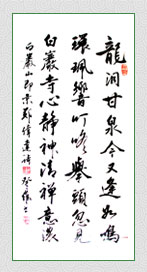 龍洞甘泉今又逢如鳴
環珮響叮咚舉頭忽見
白巖寺心靜神清禪意濃
白巖山即景鄭偉達詩